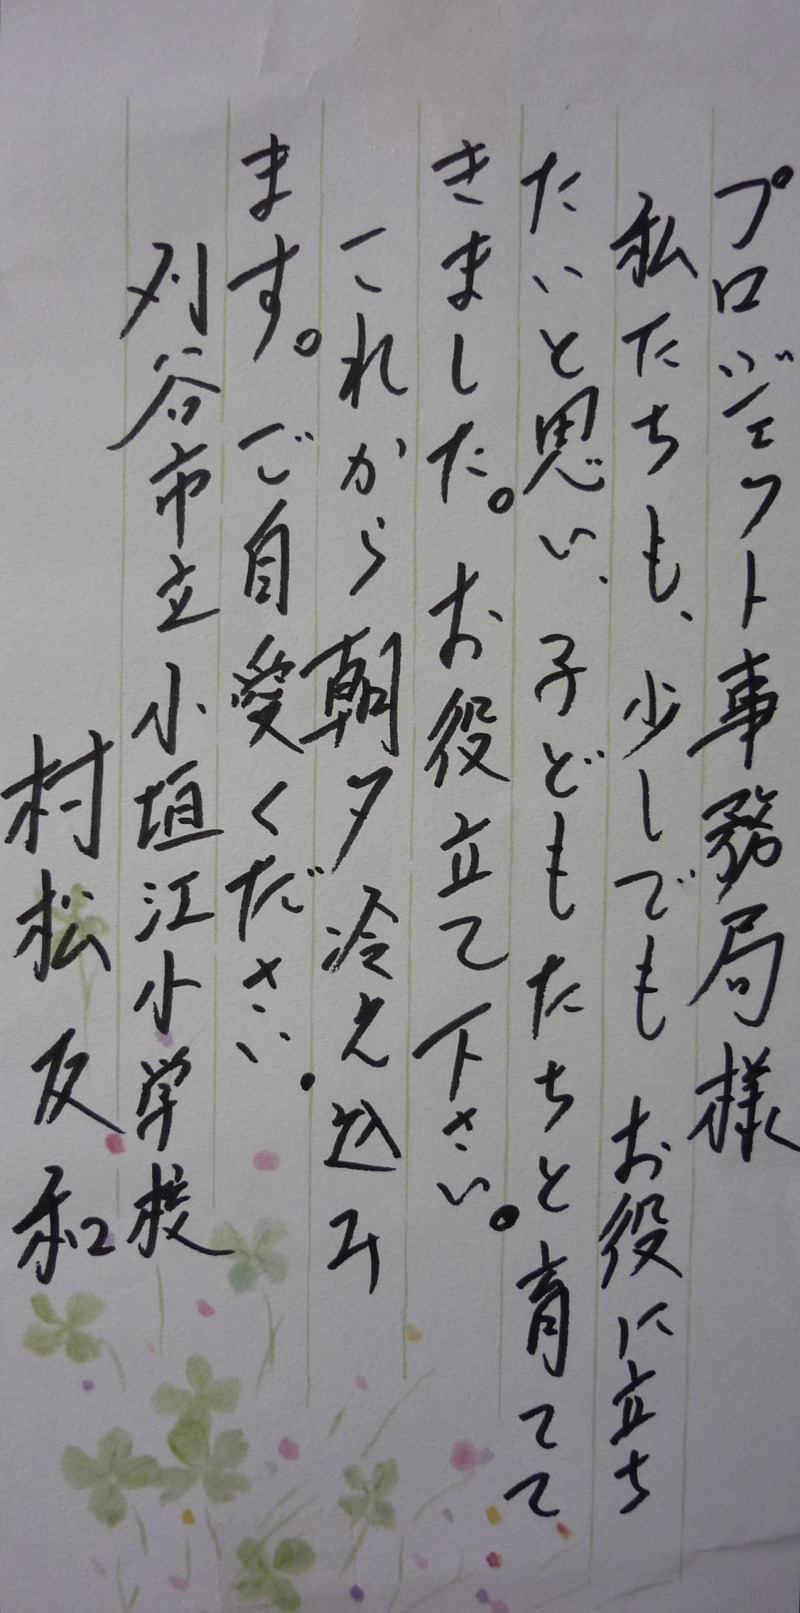 プロジェクト事務局様
私たちも、少しでもお役に立ち
たいと思い、子どもたちと育てて
きました。お役立て下さい。
これから朝夕冷え込み
ます。ご自愛ください。
刈谷市立小垣江小学校
村松友和